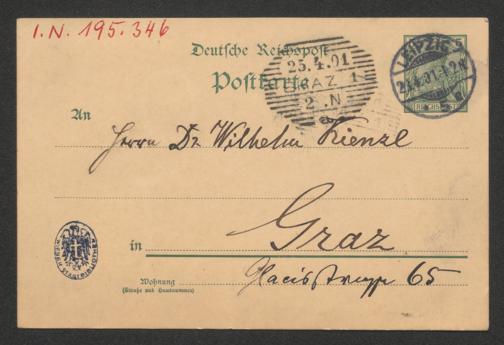 I.N. 195.346
Deutsche Reichspost
Postkarte
25.4.01
GRAZ 1
2.N
LEIPZIG
An
Herrn Dr Wilhelm Kienzl
in Graz
Wohnung Glacisstrasse 65
(Straße und Hausnummer)